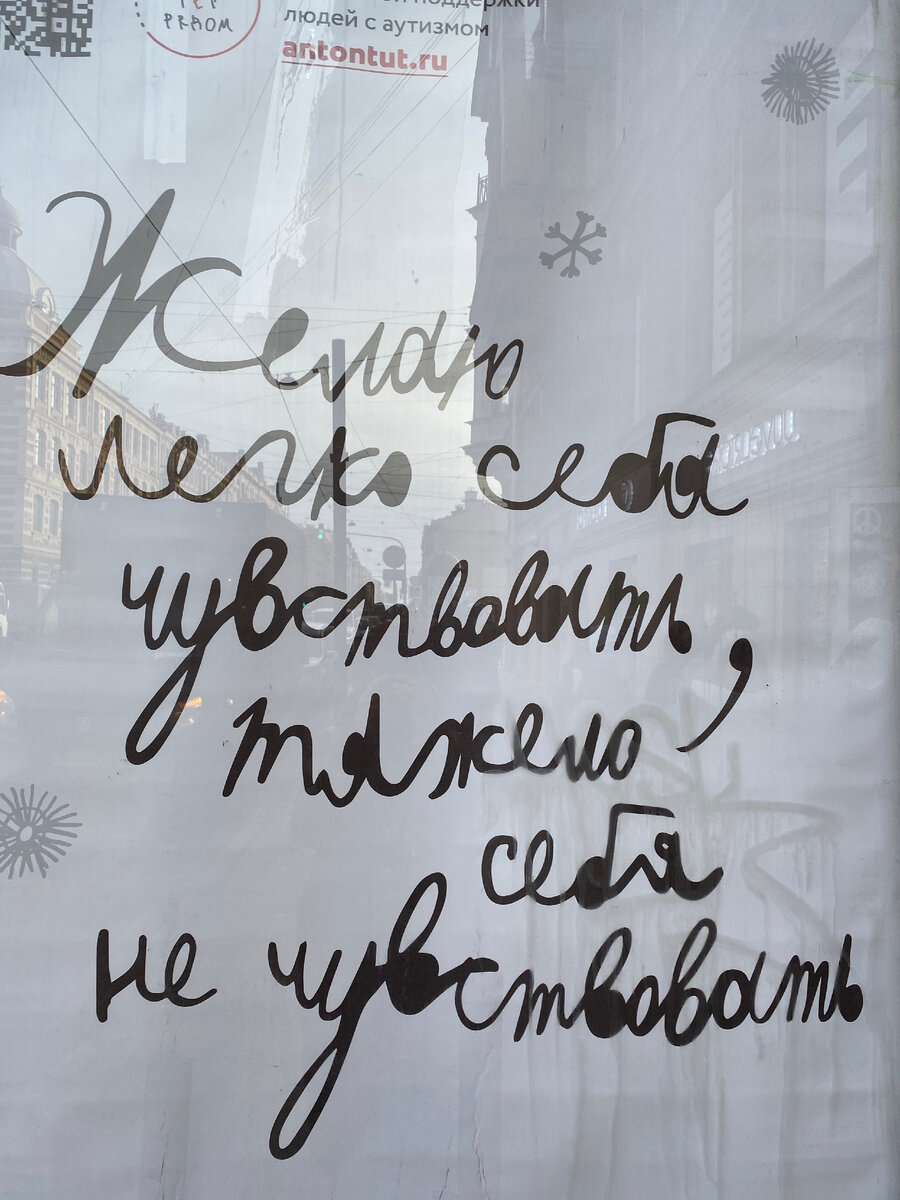 поддержки
людей с аутизмом
antontut.ru
Желаю
легко себя
чувствовать,
тяжело
себя
не чувствовать